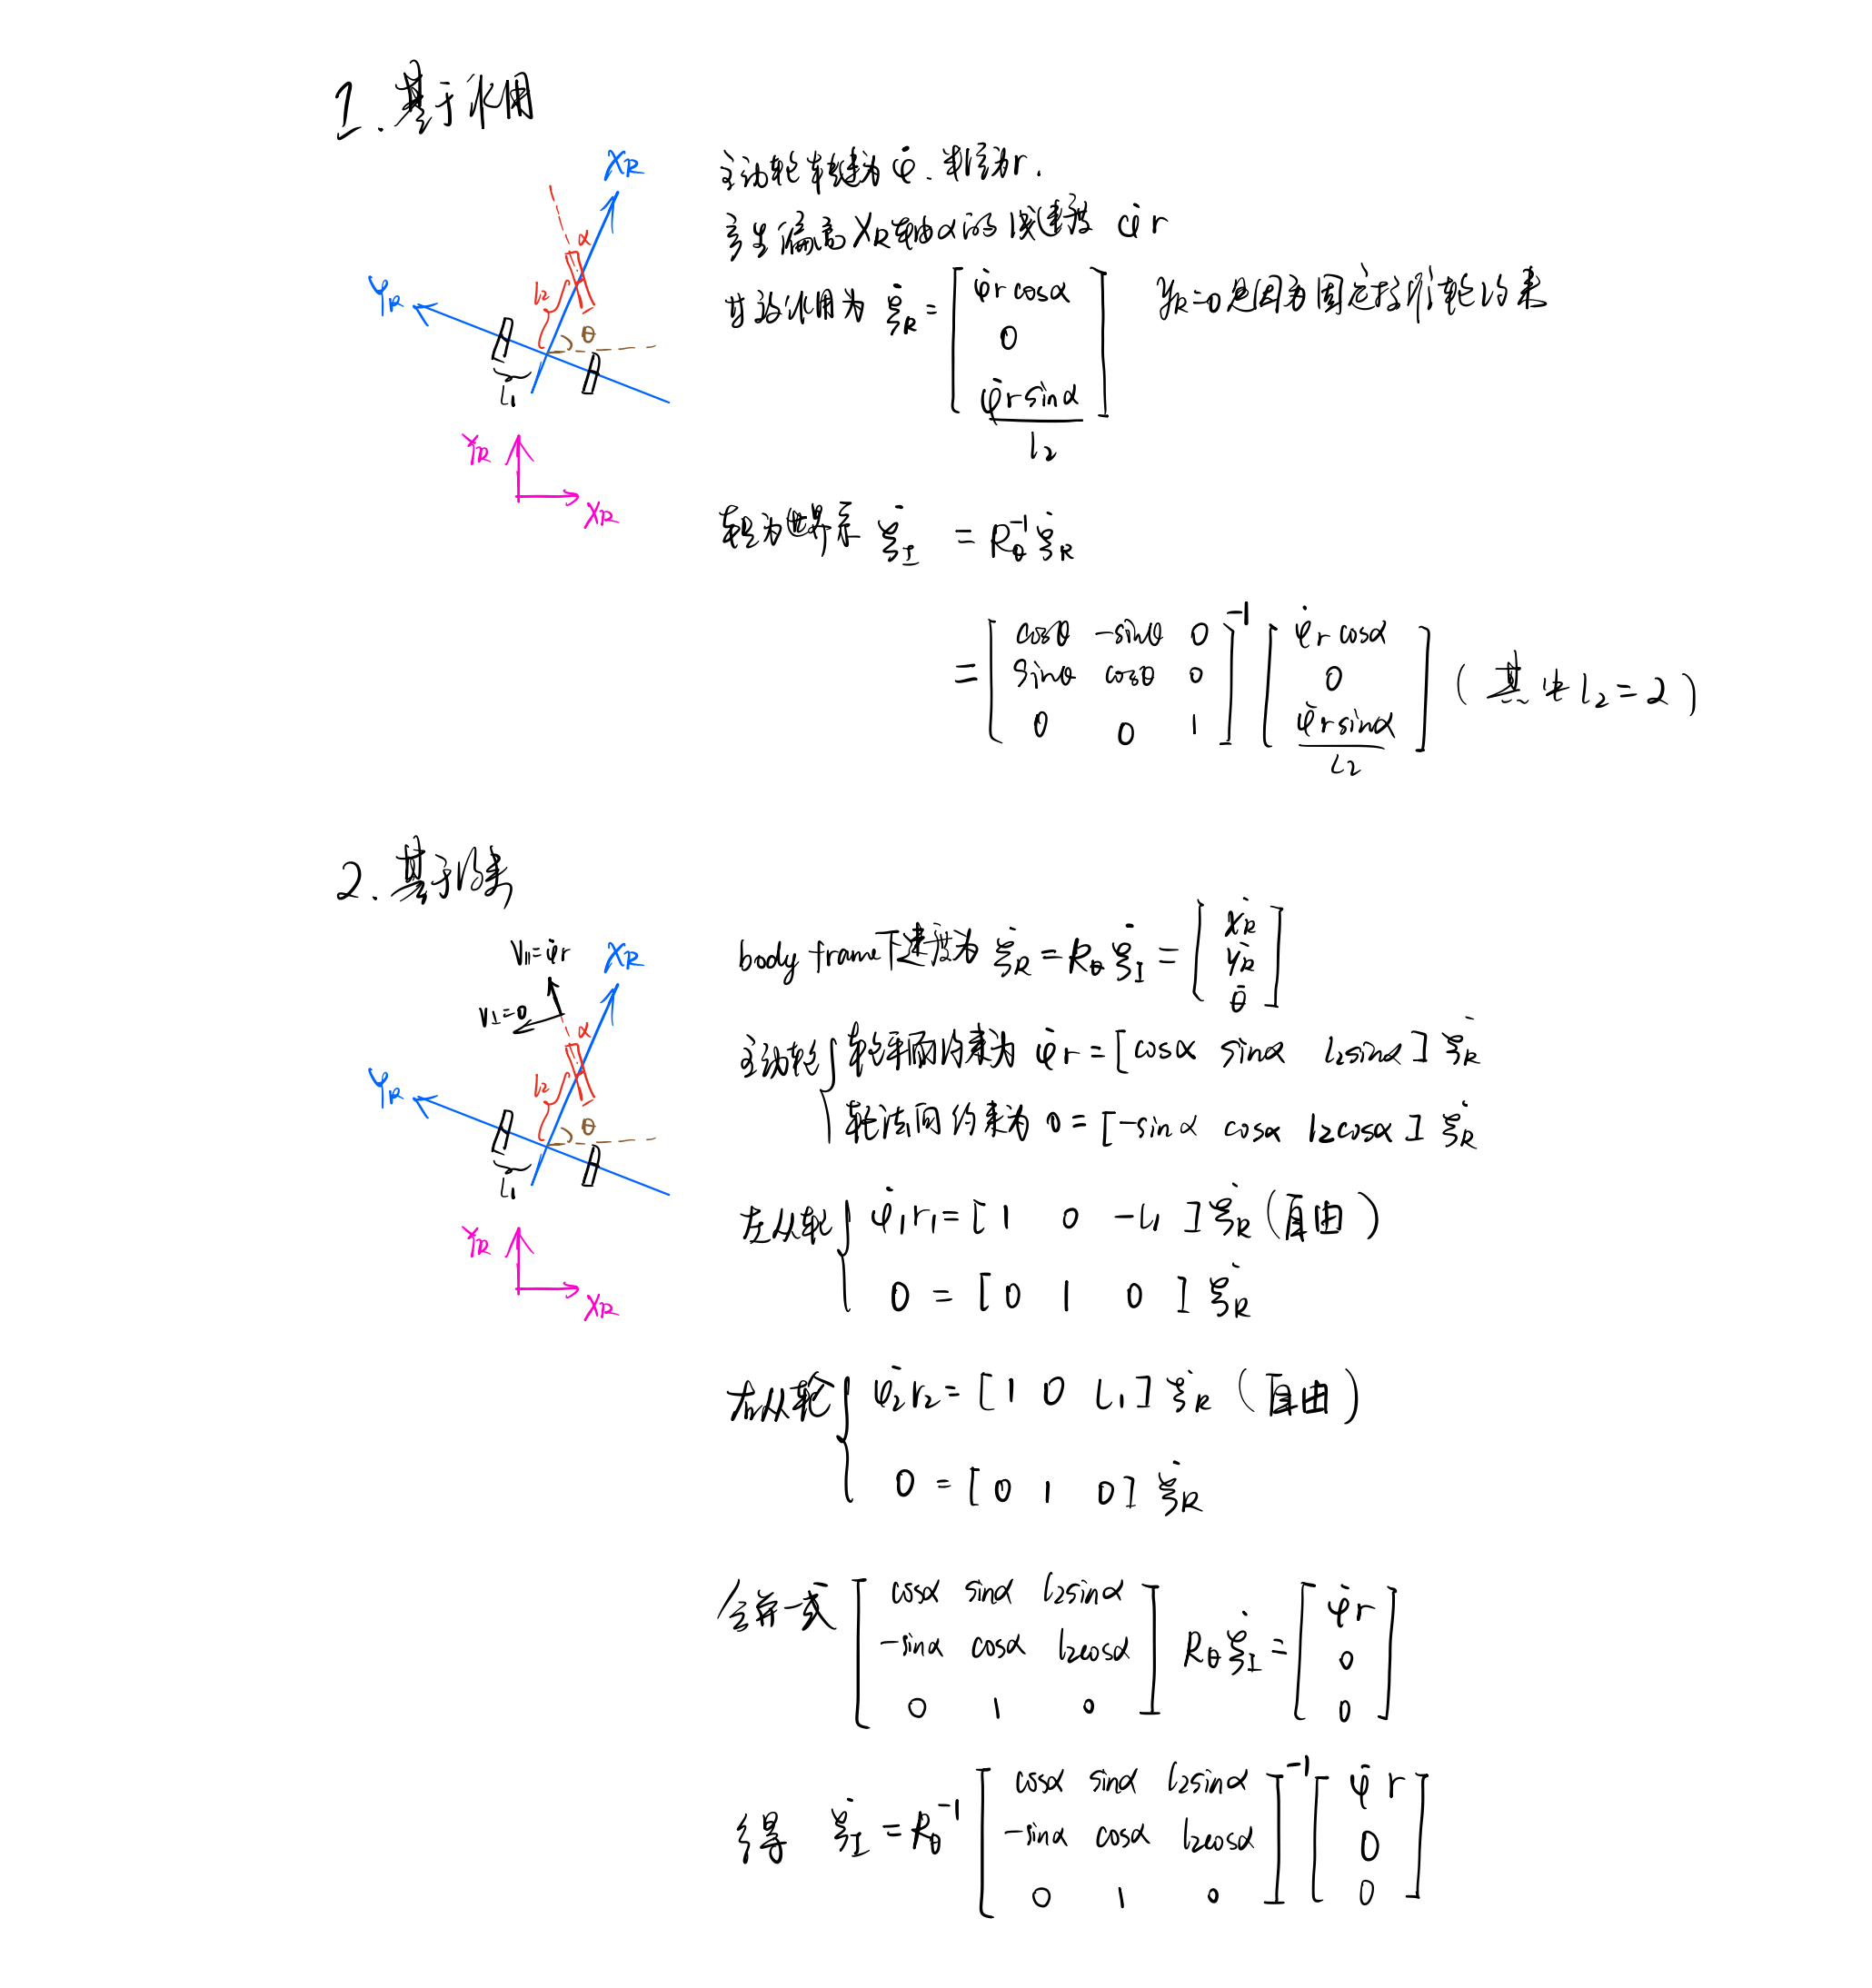 1. 基于作用
X_R
Y_R
α
l₂
θ
l₁
Y_R
X_R
主动轮转速为 φ̇. 半径为r.
产生偏离X_R轴α的线速度 φ̇r
其效作用为 ξ̇_R = [φ̇r cosα; 0; φ̇r sinα / l₂] ẏ_R=0是因为固定标准轮约束
转为世界系 ξ̇_I = R_θ⁻¹ ξ̇_R
= [cosθ -sinθ 0; sinθ cosθ 0; 0 0 1]⁻¹ [φ̇r cosα; 0; φ̇r sinα / l₂] (其中l₂=2)
2. 基于约束
V_∥=φ̇r
V_⊥=0
X_R
Y_R
α
l₂
θ
l₁
Y_R
X_R
body frame下速度为 ξ̇_R = R_θ ξ̇_I = [ẋ_R; ẏ_R; θ̇]
主动轮{ 轮平面约束为 φ̇r = [cosα sinα l₂sinα] ξ̇_R
轮法向约束为 0 = [-sinα cosα l₂cosα] ξ̇_R
左从轮{ φ̇₁r₁ = [1 0 -l₁] ξ̇_R (自由)
0 = [0 1 0] ξ̇_R
右从轮{ φ̇₂r₂ = [1 0 l₁] ξ̇_R (自由)
0 = [0 1 0] ξ̇_R
合并一式 [cosα sinα l₂sinα; -sinα cosα l₂cosα; 0 1 0] R_θ ξ̇_I = [φ̇r; 0; 0]
得 ξ̇_I = R_θ⁻¹ [cosα sinα l₂sinα; -sinα cosα l₂cosα; 0 1 0]⁻¹ [φ̇r; 0; 0]